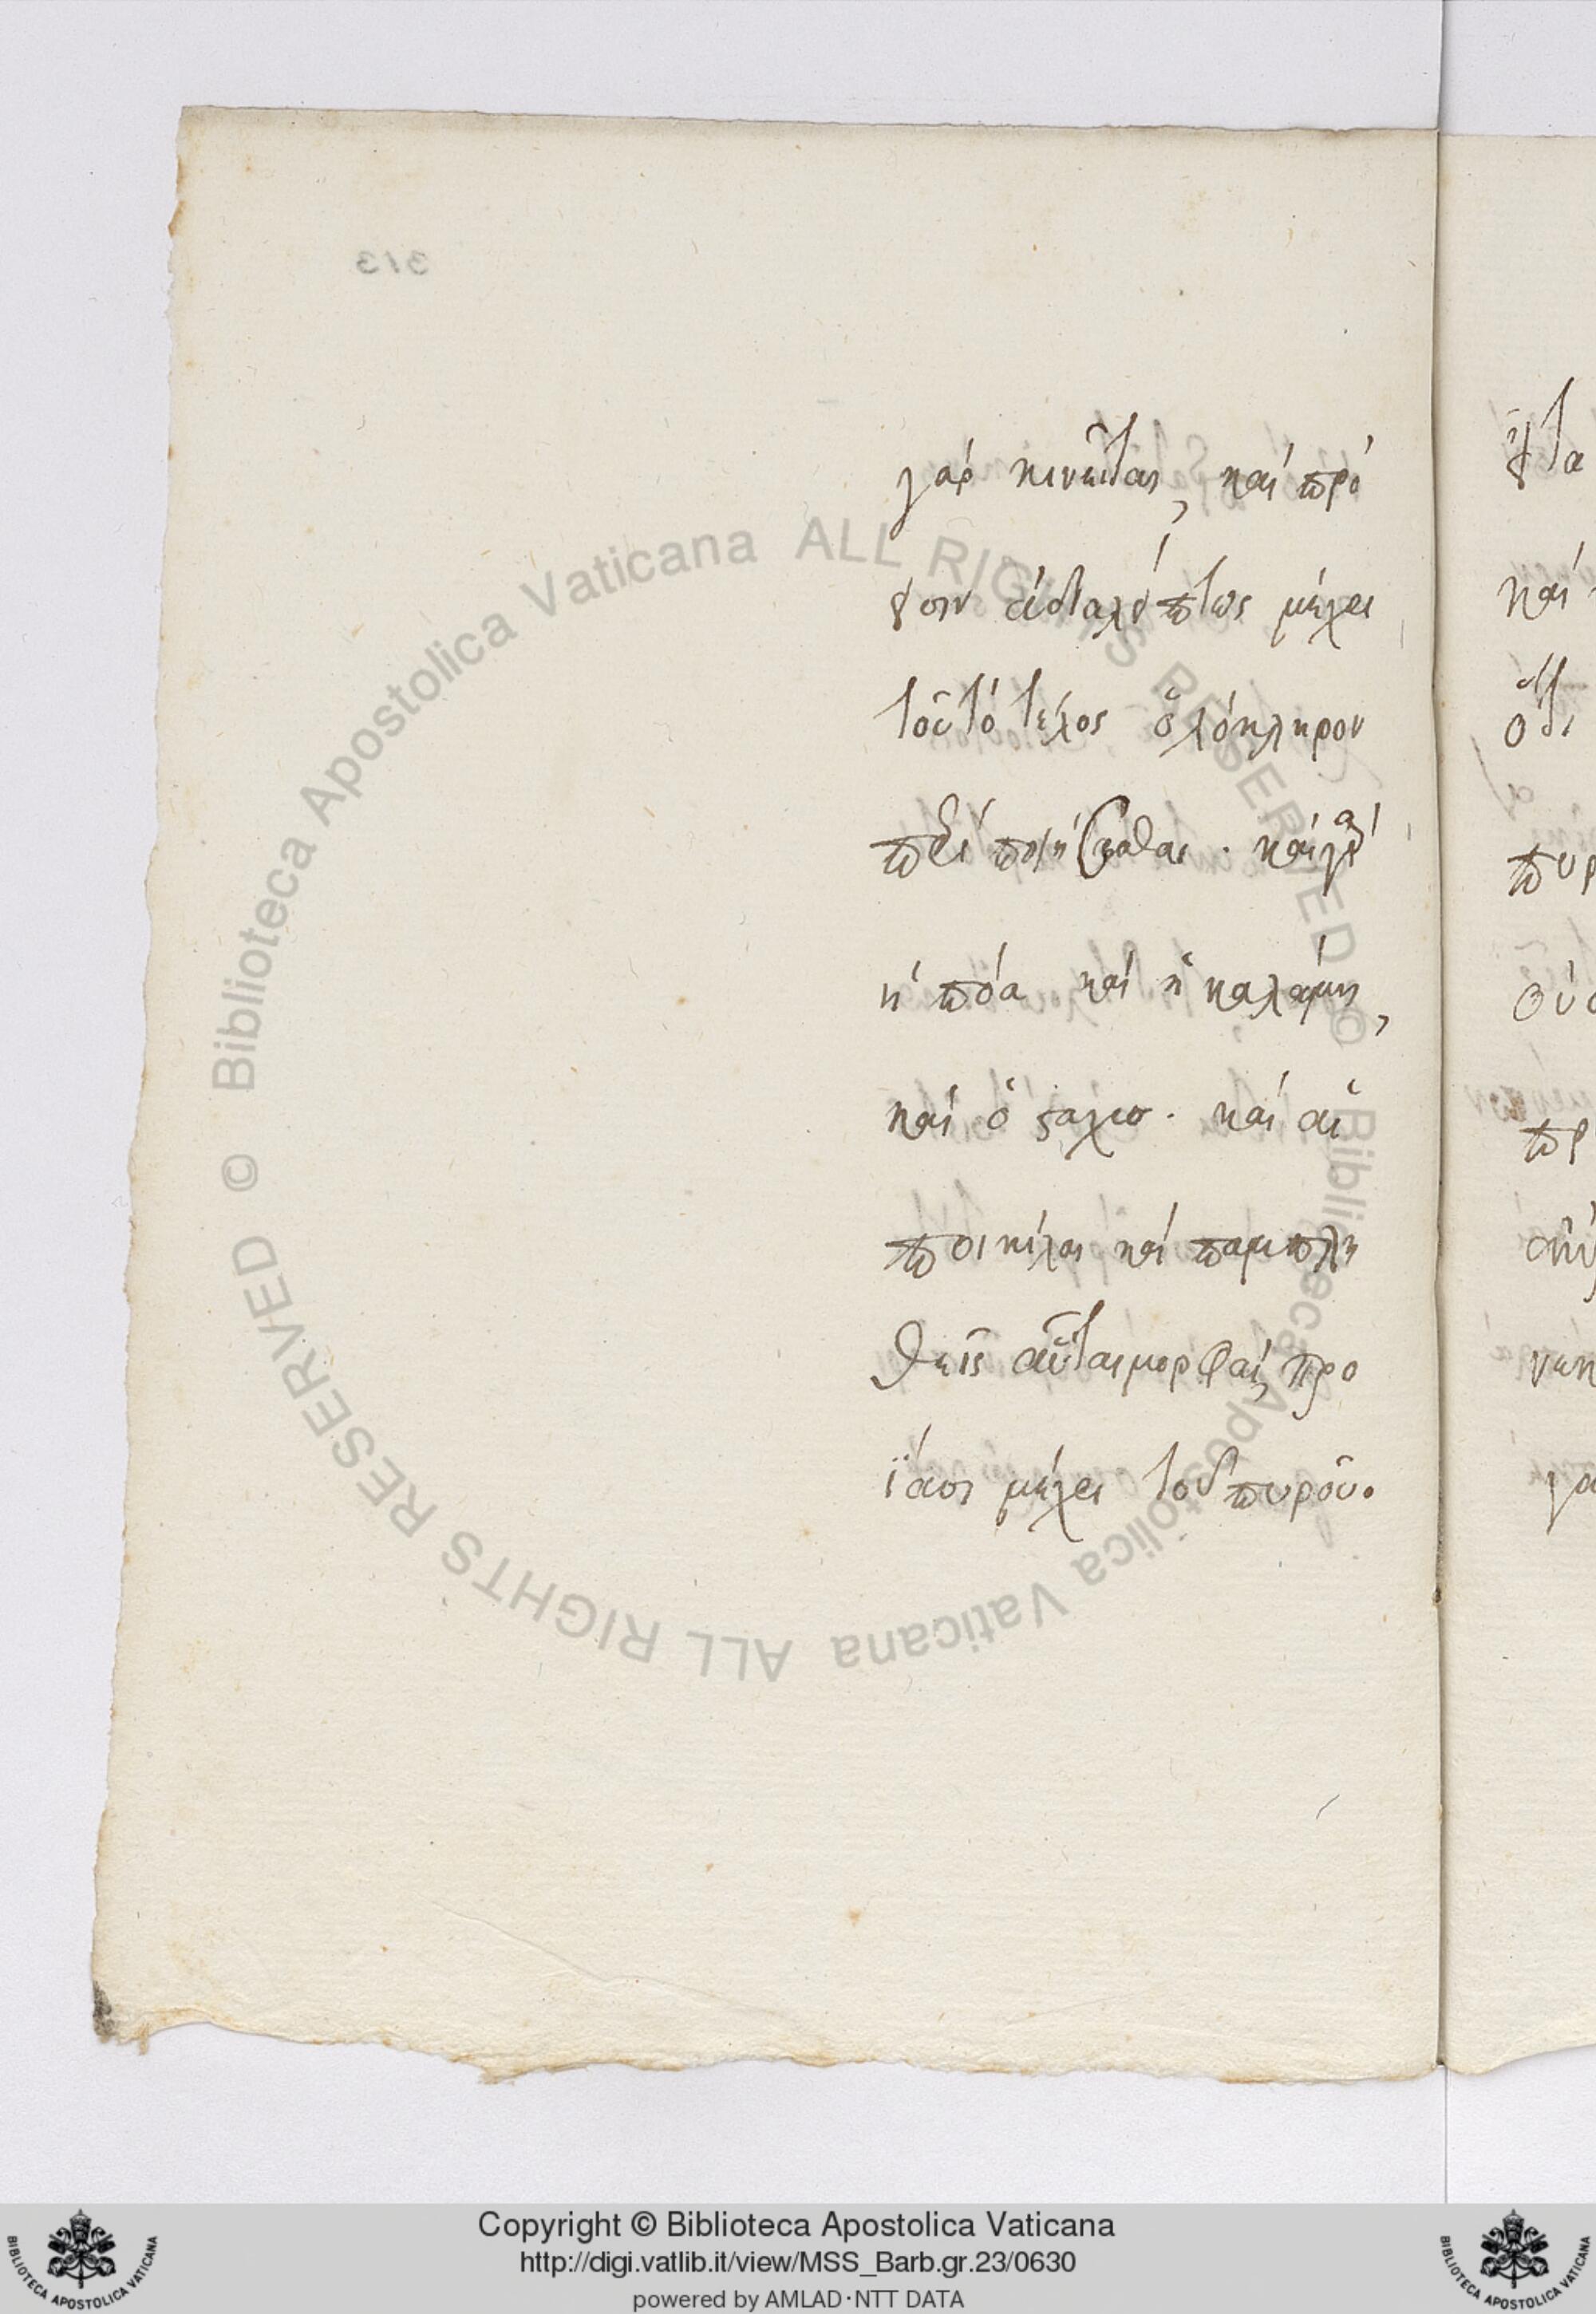 313
γὰρ κινεῖται, καὶ πρό
εισιν ἀδιαλείπτως μέχρι
τοῦ τὸ τέλος ὁλόκληρον
καὶ ἡ πόα καὶ ἡ καλάμη,
καὶ ὁ στάχυσ. καὶ αἱ
ποικίλαι καὶ παμπλη
θεῖς αὗται μορφαὶ, προ
ΐασι μέχρι τοῦ πυροῦ.
© Biblioteca Apostolica Vaticana ALL RIGHTS RESERVED © Biblioteca Apostolica Vaticana ALL RIGHTS RESERVED
Copyright © Biblioteca Apostolica Vaticana
http://digi.vatlib.it/view/MSS_Barb.gr.23/0630
powered by AMLAD·NTT DATA
BIBLIOTECA APOSTOLICA VATICANA
BIBLIOTECA APOSTOLICA VATICANA